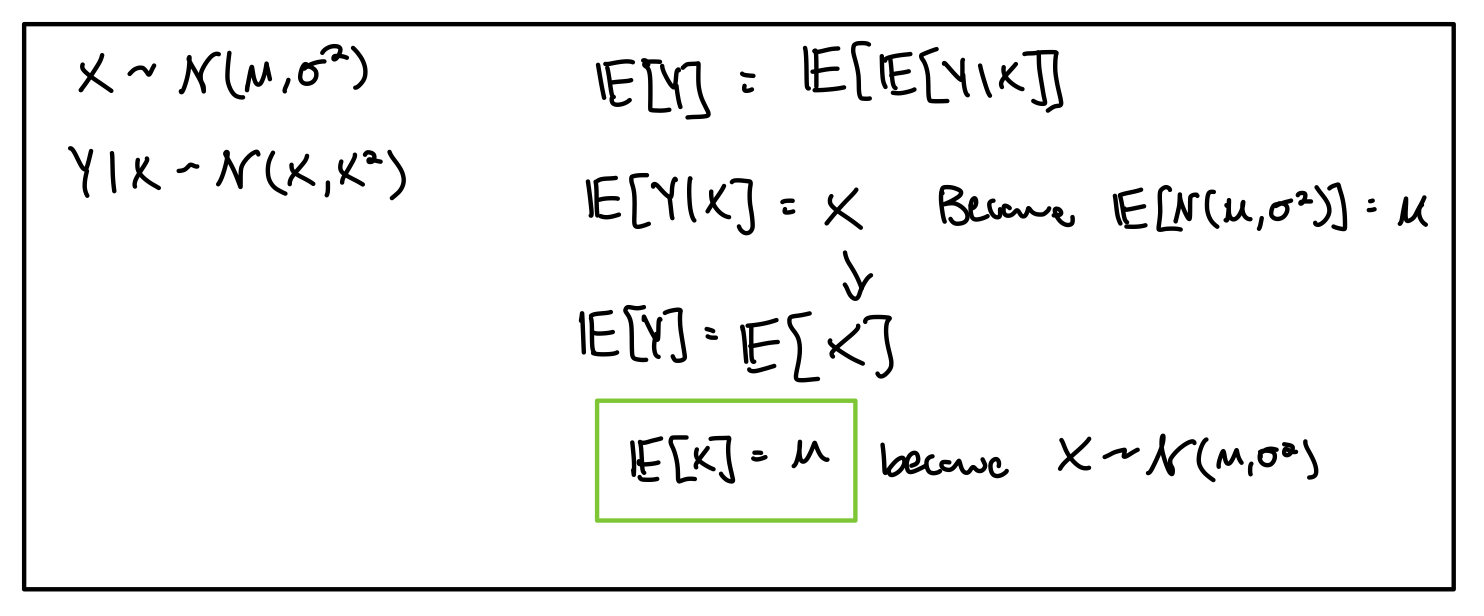 X ~ N(μ, σ²)
Y|X ~ N(X, X²)
𝔼[Y] = 𝔼[𝔼[Y|X]]
𝔼[Y|X] = X Because 𝔼[N(μ, σ²)] = μ
↓
𝔼[Y] = 𝔼[X]
𝔼[X] = μ because X ~ N(μ, σ²)